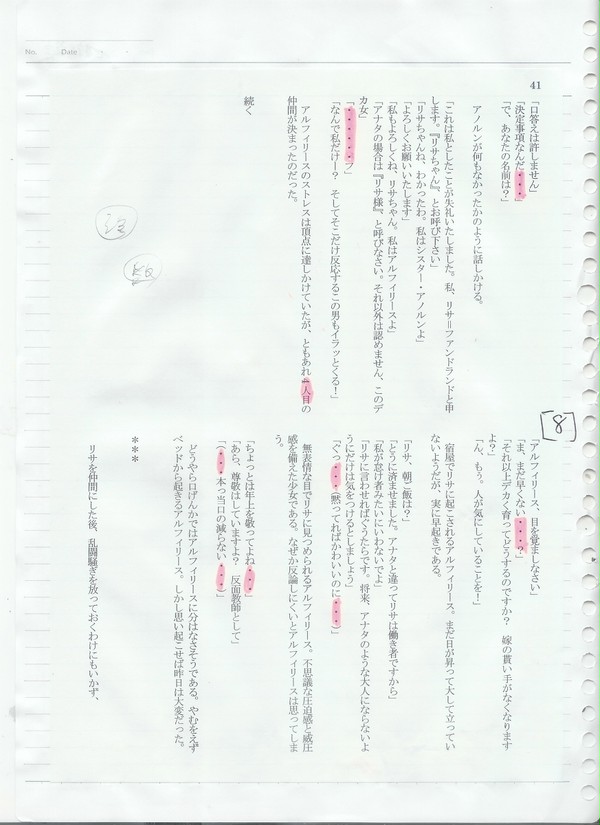 No.
Date
41
「口答えは許しません」
「決定事項なんだ・・・」
「で、あなたの名前は?」
アノルンが何もなかったかのように話しかける。
「これは私としたことが失礼いたしました。私、リサ＝ファンドランドと申
します。『リサちゃん』、とお呼び下さい」
「リサちゃんね、わかったわ。私はシスター・アノルンよ」
「よろしくお願いいたします」
「私もよろしくね、リサちゃん。私はアルフィリースよ」
「アナタの場合は『リサ様』、と呼びなさい。それ以外は認めません、このデ
カ女」
「なんで私だけー?　そしてそこだけ反応するこの男もイラッとくる!」
アルフィリースのストレスは頂点に達しかけていたが、ともあれ
人目の
仲間が決まったのだった。
続く
[8]
「アルフィリース、目を覚ましなさい」
「ま、まだ早くない・・・?」
「それ以上デカく育ってどうするのですか?　嫁の貰い手がなくなります
よ?」
「ん、もう。人が気にしていることを!」
宿屋でリサに起こされるアルフィリース。まだ日が昇って大して立ってい
ないようだが、実に早起きである。
「リサ、朝ご飯は?」
「とうに済ませました。アナタと違ってリサは働き者ですから」
「私が怠け者みたいにいわないでよ」
「リサに言わせればぐうたらです。将来、アナタのような大人にならないよ
うにだけは気をつけるとしましょう」
「ぐっ・・・(黙ってればかわいいのに・・・)」
無表情な目でリサに見つめられるアルフィリース。不思議な圧迫感と威圧
感を備えた少女である。なぜか反論しにくいとアルフィリースは思ってしま
う。
「ちょっとは年上を敬ってよね・・・」
「あら、尊敬はしていますよ?　反面教師として」
「(・・・本っ当口の減らない・・・)」
どうやら口げんかではアルフィリースに分はなさそうである。やむをえず
ベッドから起きるアルフィリース。しかし思い起こせば昨日は大変だった。
＊＊＊
リサを仲間にした後、乱闘騒ぎを放っておくわけにもいかず、